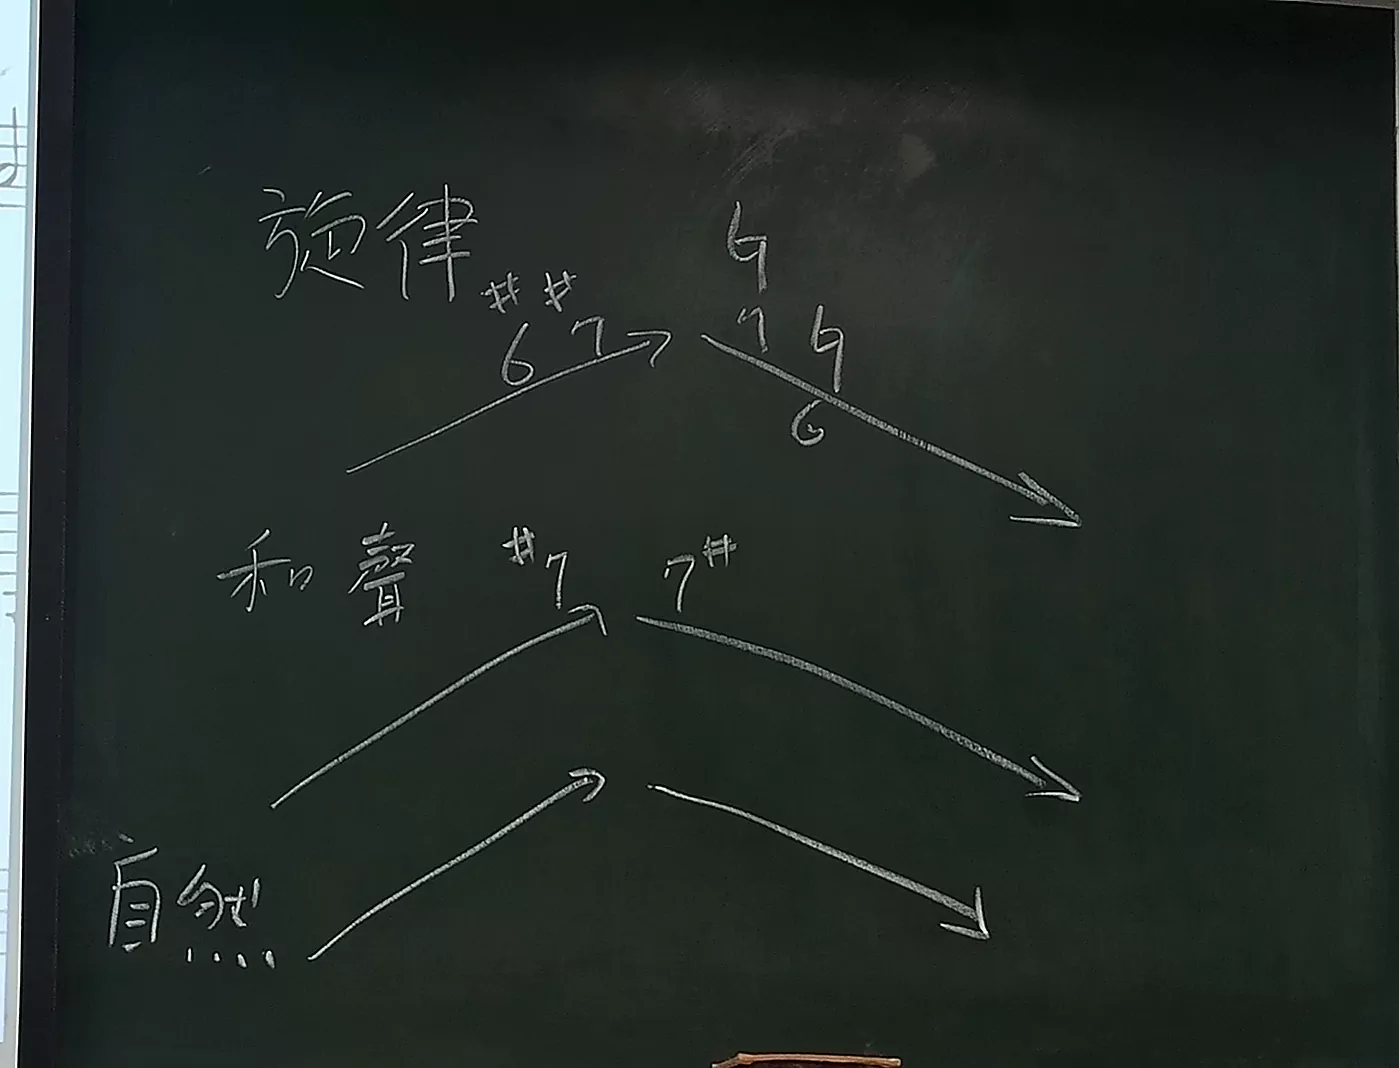 旋律
♯ ♯ ♮
6 7 7 ♮
6
和聲 ♯7 7♯
自然